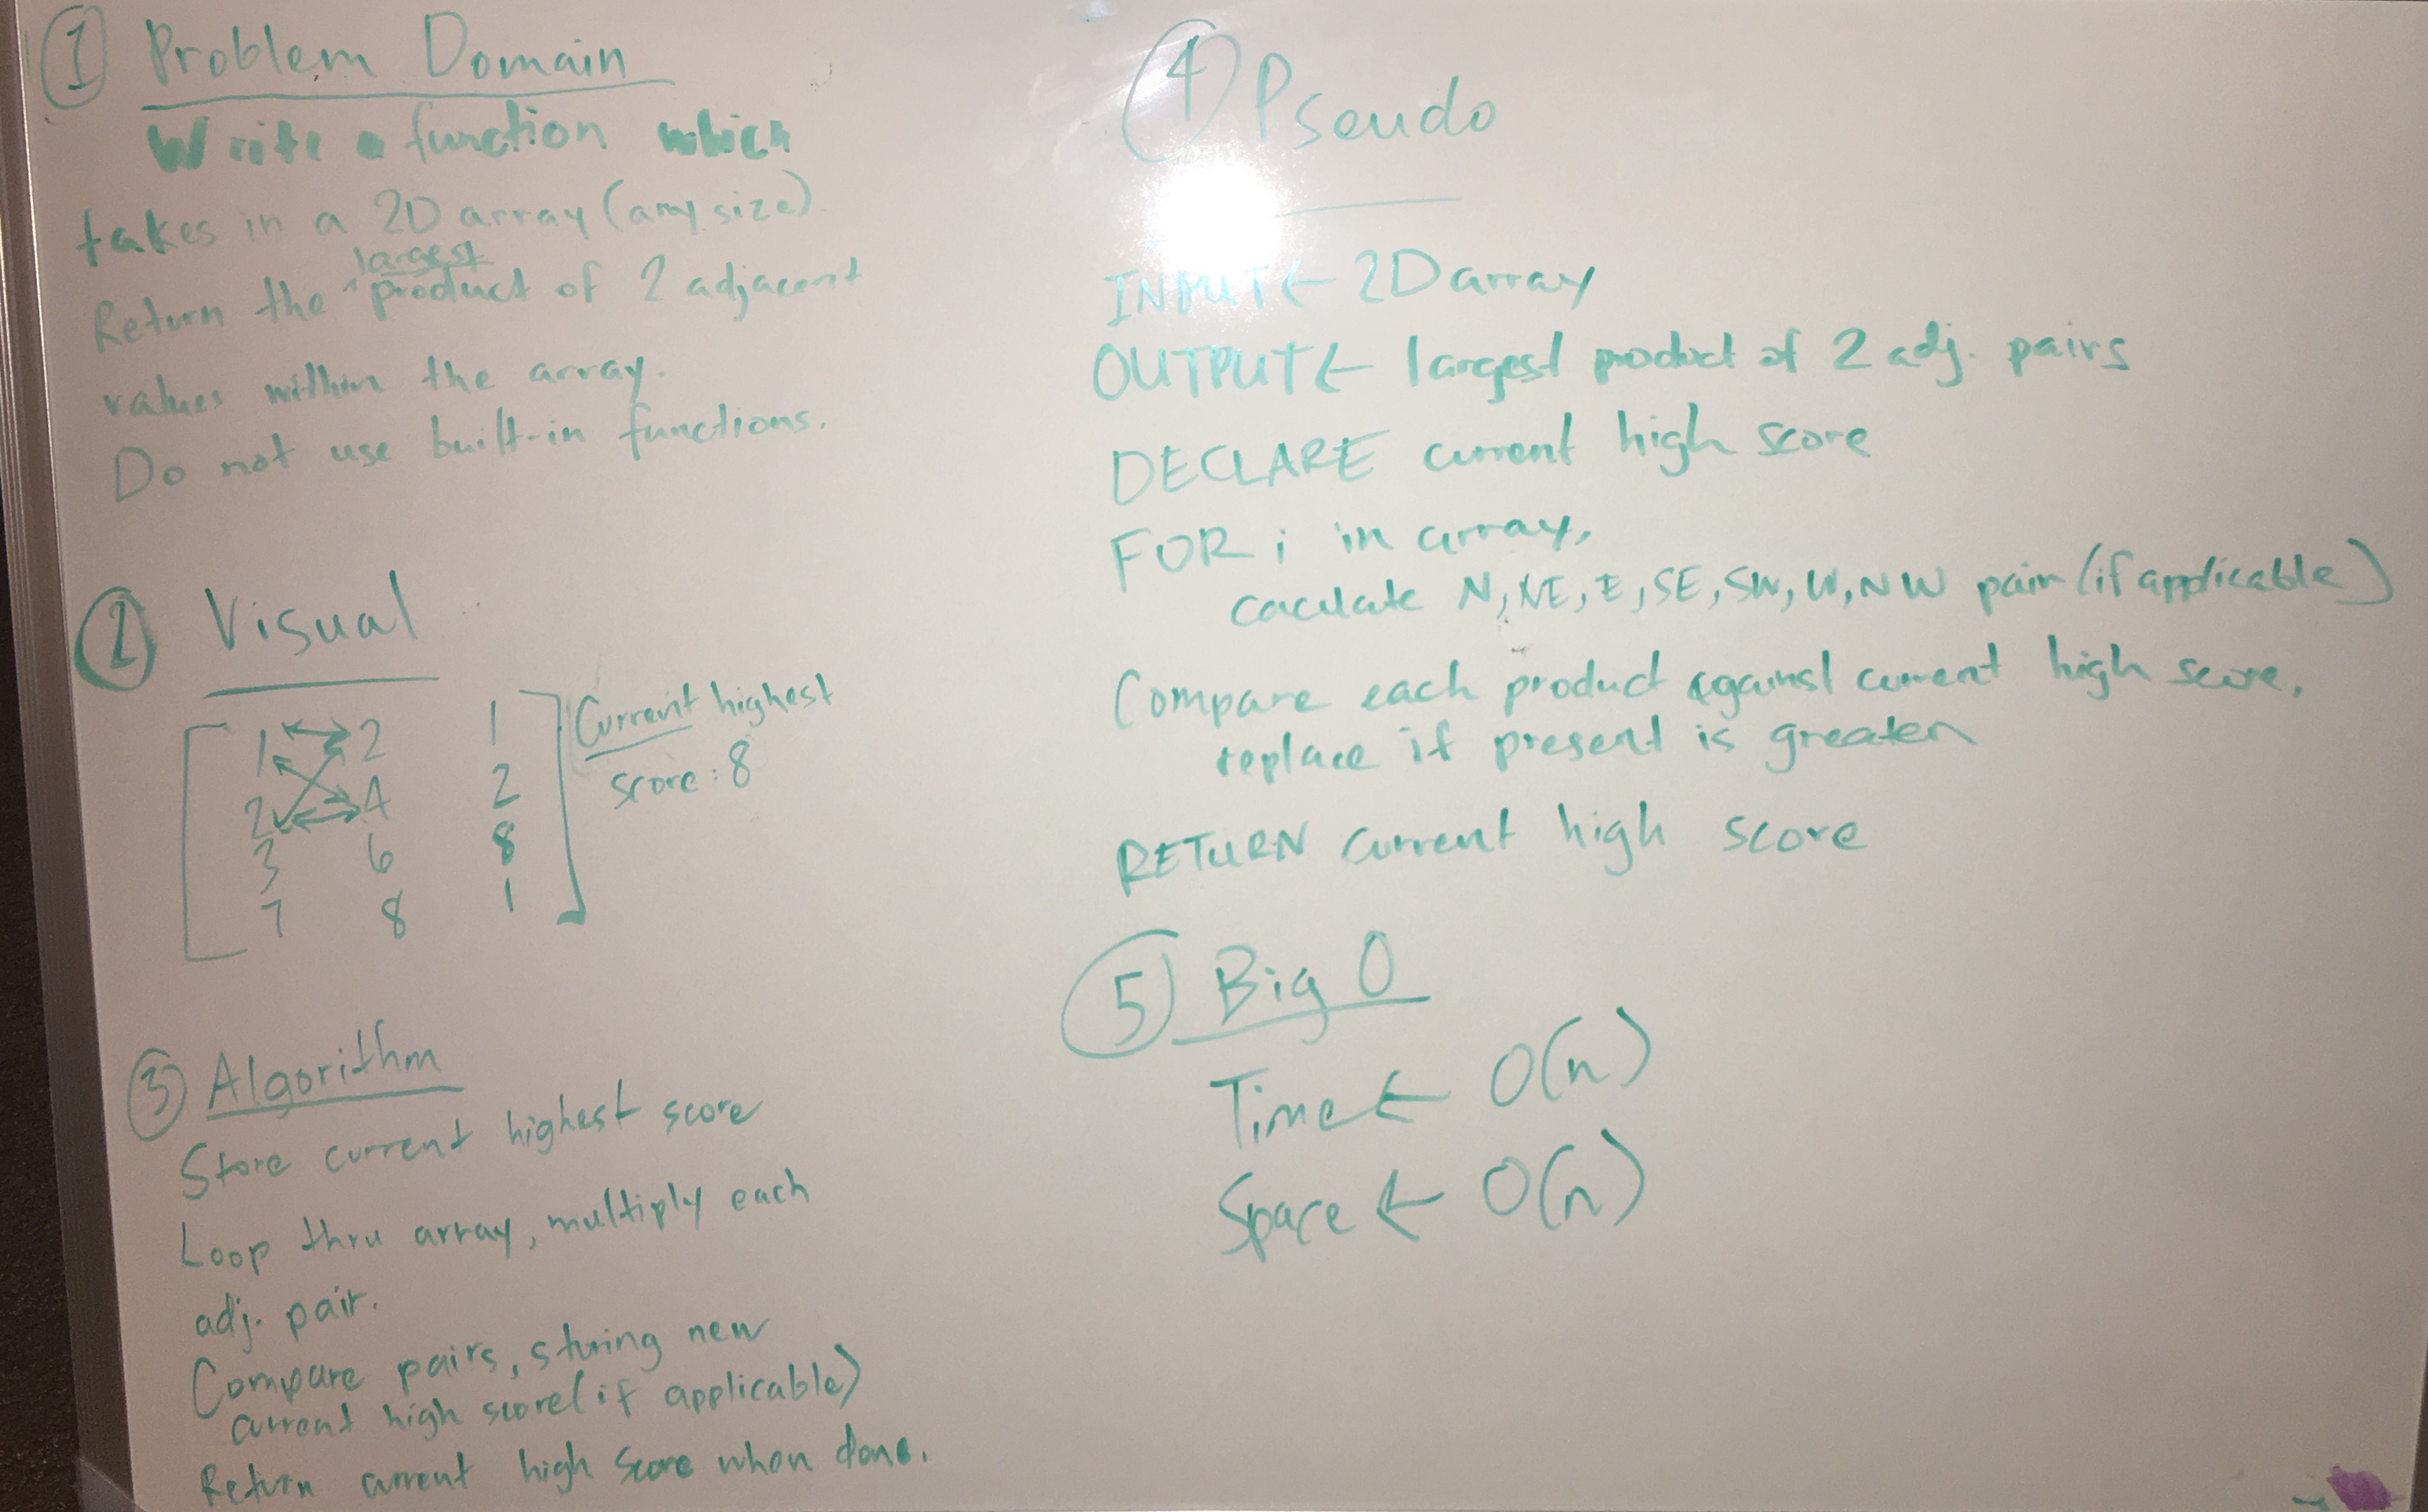 ① Problem Domain
Write a function which
takes in a 2D array (any size).
Return the ^largest product of 2 adjacent
values within the array.
Do not use built-in functions.
② Visual
1 2 1
2 4 2
3 6 8
7 8 1
Current highest
score: 8
③ Algorithm
Store current highest score
Loop thru array, multiply each
adj. pair.
Compare pairs, storing new
current high score (if applicable)
Return current high score when done.
④ Pseudo
INPUT ← 2D array
OUTPUT ← largest product of 2 adj. pairs
DECLARE current high score
FOR i in array,
caculate N, NE, E, SE, SW, W, NW pair (if applicable)
Compare each product against current high score,
replace if present is greater
RETURN current high score
⑤ Big O
Time ← O(n)
Space ← O(n)